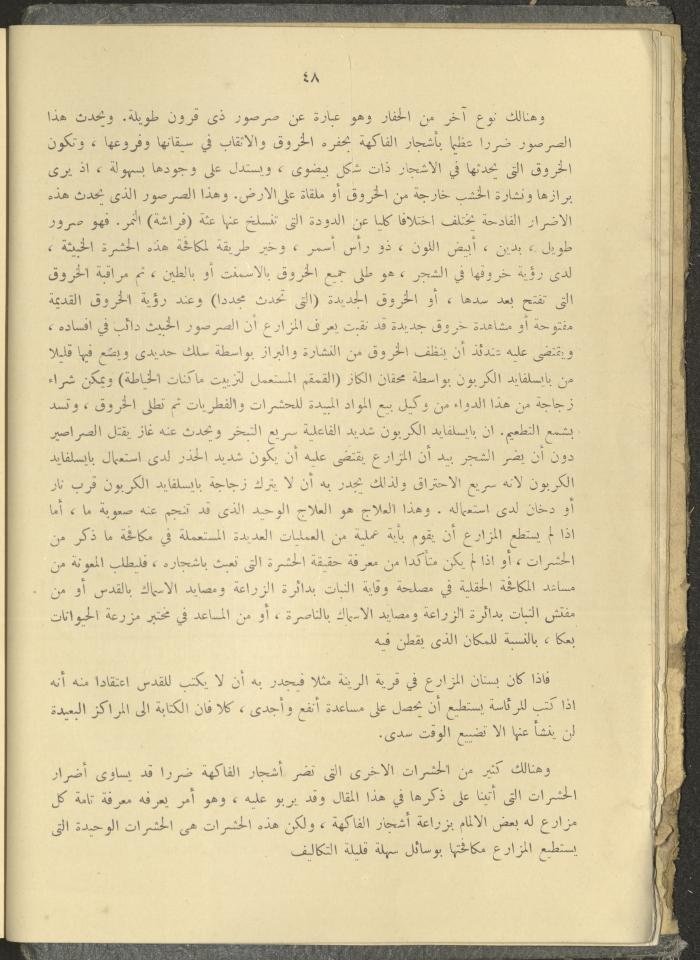 ٤٨
وهنالك نوع آخر من الحفار وهو عبارة عن صرصور ذى قرون طويلة. ويحدث هذا
الصرصور ضررا عظيما بأشجار الفاكهة بحفره الخروق والاثقاب في سيقانها وفروعها ، وتكون
الخروق التى يحدثها في الاشجار ذات شكل بيضوى ، ويستدل على وجودها بسهولة ، اذ يرى
برازها ونشارة الخشب خارجة من الخروق أو ملقاة على الارض. وهذا الصرصور الذى يحدث هذه
الاضرار الفادحة يختلف اختلافا كليا عن الدودة التى تنسلخ عنها عثة (فراشة) النمر. فهو صرور
طويل ، بدين ، أبيض اللون ، ذو رأس أسمر ، وخير طريقة لمكافحة هذه الحشرة الخبيثة ،
لدى رؤية خروقها في الشجر ، هو طلى جميع الخروق بالاسمنت أو بالطين ، ثم مراقبة الخروق
التى تفتح بعد سدها ، أو الخروق الجديدة (التى تحدث مجددا) وعند رؤية الخروق القديمة
مفتوحة أو مشاهدة خروق جديدة قد نقبت يعرف المزارع أن الصرصور الخبيث دائب في افساده ،
ويقتضى عليه عندئذ أن ينظف الخروق من النشارة والبراز بواسطة سلك حديدى ويضع فيها قليلا
من بايسلفايد الكربون بواسطة محقان الكاز (القمقم المستعمل لتزييت ماكنات الخياطة) ويمكن شراء
زجاجة من هذا الدواء من وكيل بيع المواد المبيدة للحشرات والفطريات ثم تطلى الخروق ، وتسد
بشمع التطعيم. ان بايسلفايد الكربون شديد الفاعلية سريع التبخر ويحدث عنه غاز يقتل الصراصير
دون أن يضر الشجر بيد أن المزارع يقتضى عليه أن يكون شديد الحذر لدى استعمال بايسلفايد
الكربون لانه سريع الاحتراق ولذلك يجدر به أن لا يترك زجاجة بايسلفايد الكربون قرب نار
أو دخان لدى استعماله . وهذا العلاج هو العلاج الوحيد الذى قد تنجم عنه صعوبة ما ، أما
اذا لم يستطع المزارع أن يقوم بأية عملية من العمليات العديدة المستعملة في مكافحة ما ذكر من
الحشرات ، أو اذا لم يكن متأكدا من معرفة حقيقة الحشرة التى تعبث باشجاره ، فليطلب المعونة من
مساعد المكافحة الحقلية في مصلحة وقاية النبات بدائرة الزراعة ومصايد الاسماك بالقدس أو من
مفتش النبات بدائرة الزراعة ومصايد الاسماك بالناصرة ، أو من المساعد في مختبر مزرعة الحيوانات
بعكا ، بالنسبة للمكان الذى يقطن فيه
فاذا كان بستان المزارع في قرية الرينة مثلا فيجدر به أن لا يكتب للقدس اعتقادا منه أنه
اذا كتب للرئاسة يستطيع أن يحصل على مساعدة أنفع وأجدى ، كلا فان الكتابة الى المراكز البعيدة
لن ينشأ عنها الا تضييع الوقت سدى.
وهنالك كثير من الحشرات الاخرى التى تضر أشجار الفاكهة ضررا قد يساوى أضرار
الحشرات التى أتينا على ذكرها في هذا المقال وقد يربو عليه ، وهو أمر يعرفه معرفة تامة كل
مزارع له بعض الالمام بزراعة أشجار الفاكهة ، ولكن هذه الحشرات هى الحشرات الوحيدة التى
يستطيع المزارع مكافحتها بوسائل سهلة قليلة التكاليف